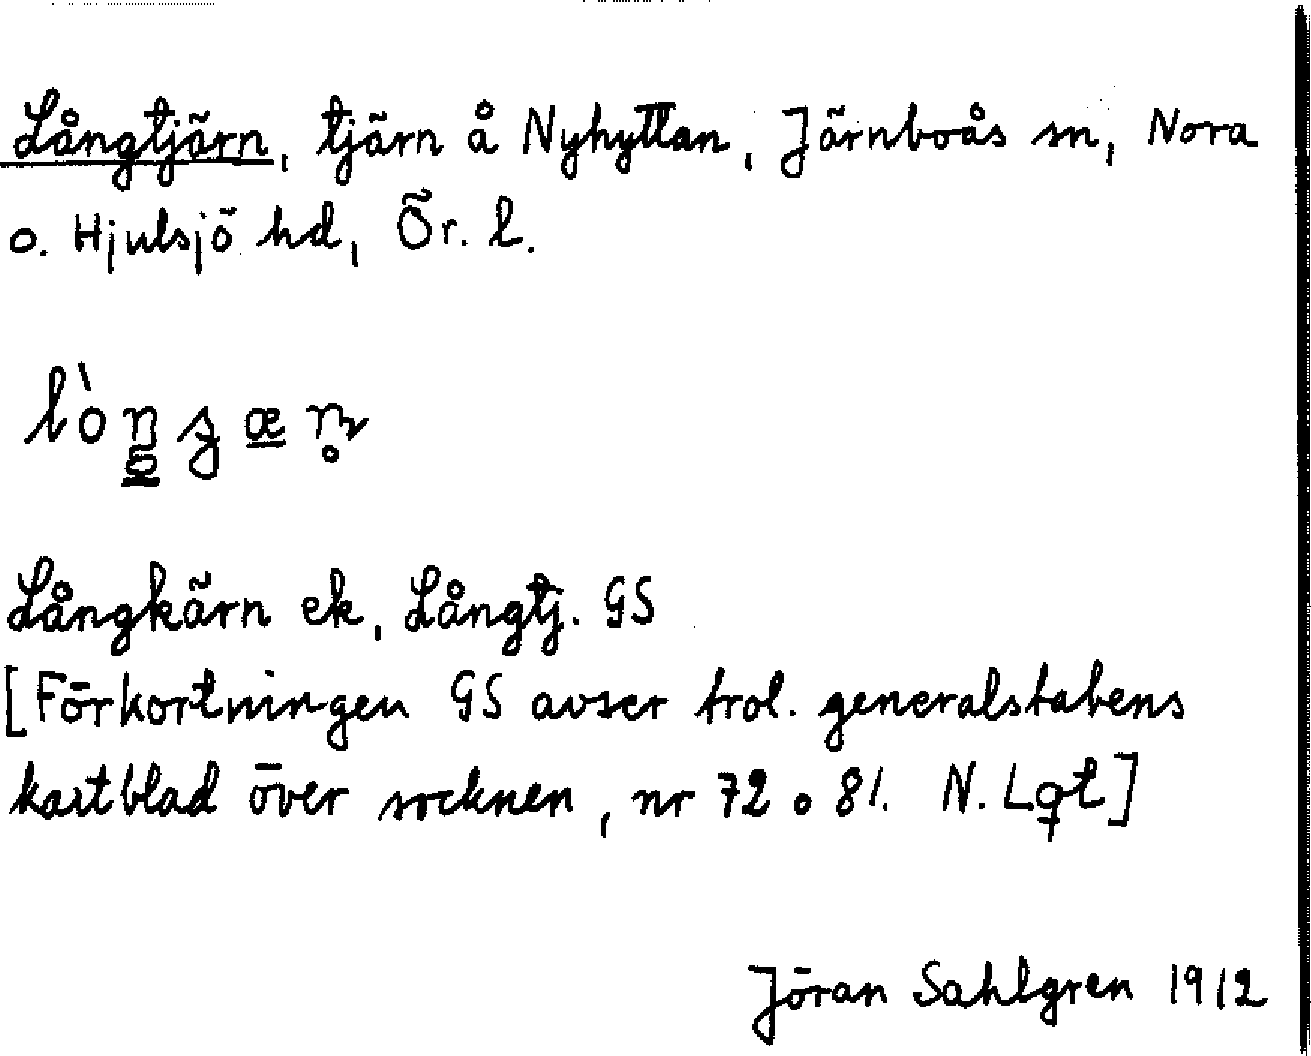 Långtjärn, tjärn å Nyhyttan, Järnboås sn, Nora
o. Hjulsjö hd, Ör. l.
Långkärn ek, Långtj. GS
[Förkortningen GS avser trol. generalstabens
kartblad över socknen, nr 72 o 81. N. Lqt]
Jöran Sahlgren 1912